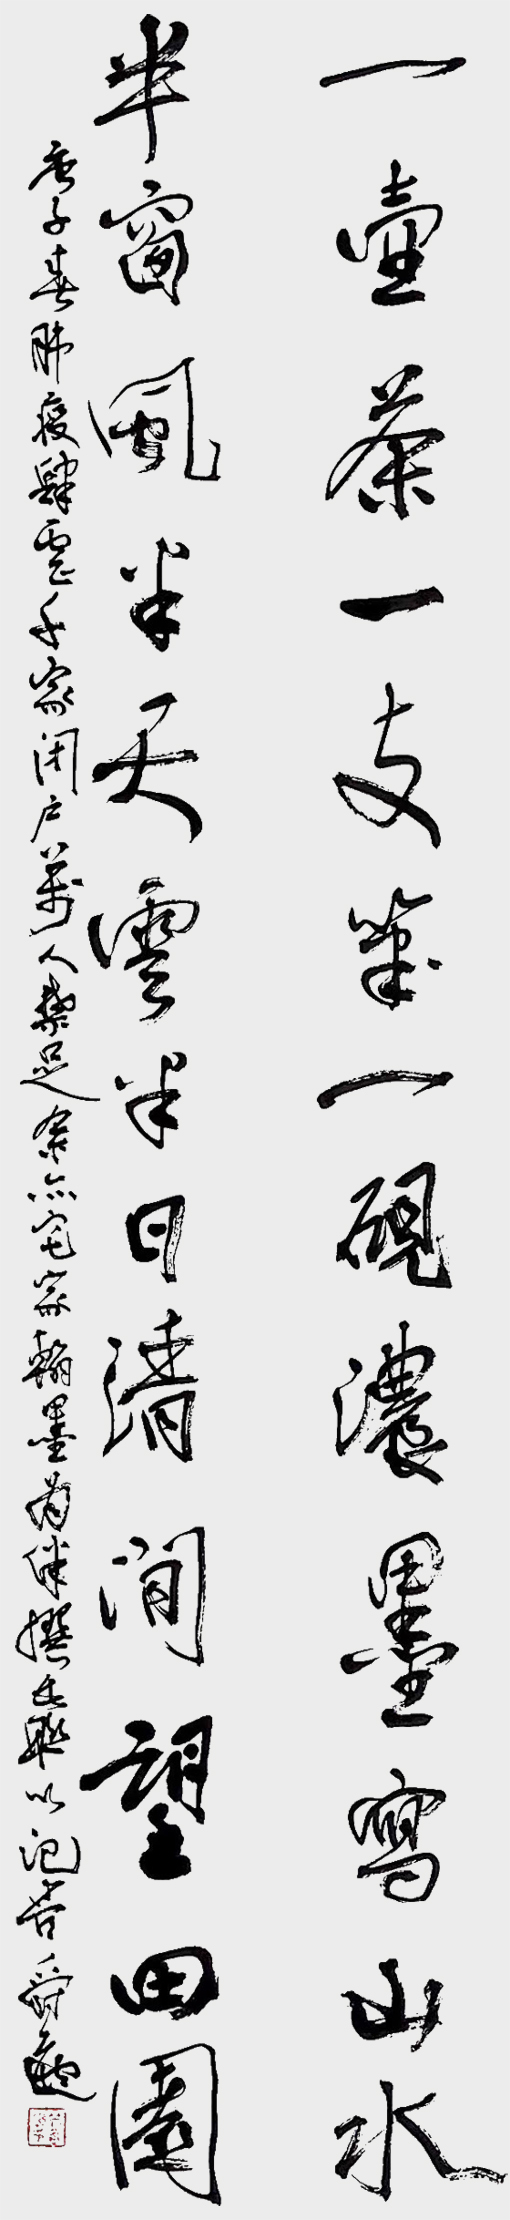 一壺茶一支筆一硯濃墨寫山水
半窗風半天雲半日清閒望田園
庚子春肺疫肆虐千家闭户萬人禁足余亦宅家翰墨為伴撰聯以記